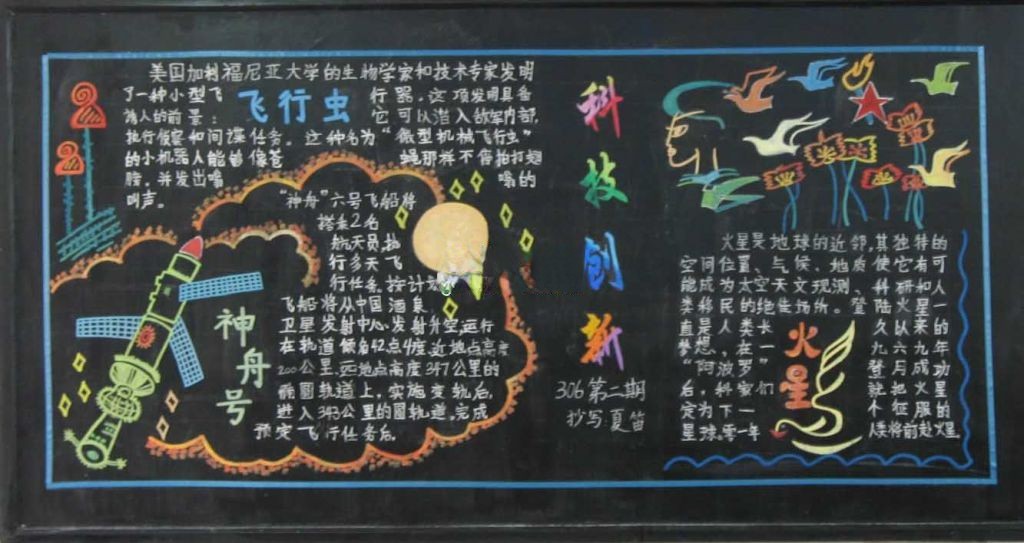 美国加利福尼亚大学的生物学家和技术专家发明
了一种小型飞行器。这项发明具备
诱人的前景：它可以潜入敌军内部，
执行侦察和间谍任务。这种名为“微型机械飞行虫”
的小机器人能够像苍蝇那样不停拍打翅
膀，并发出嗡嗡的
叫声。
飞行虫
“神舟”六号飞船将
搭乘2名
航天员，执
行多天飞
行任务。按计划
飞船将从中国酒泉
卫星发射中心发射升空，运行
在轨道倾角42点4度，近地点高度
200公里，远地点高度347公里的
椭圆轨道上，实施变轨后，
进入343公里的圆轨道，完成
预定飞行任务后。
神舟号
科技创新
306第二期
抄写：夏笛
火星是地球的近邻，其独特的
空间位置、气候、地质使它有可
能成为太空天文观测、科研和人
类移民的绝佳场所。登陆火星一
直是人类长久以来的
梦想，在一九六九年
“阿波罗”登月成功
后，科家们就把火星
定为下一个征服的
星球。零一年人类将前赴火星
火星